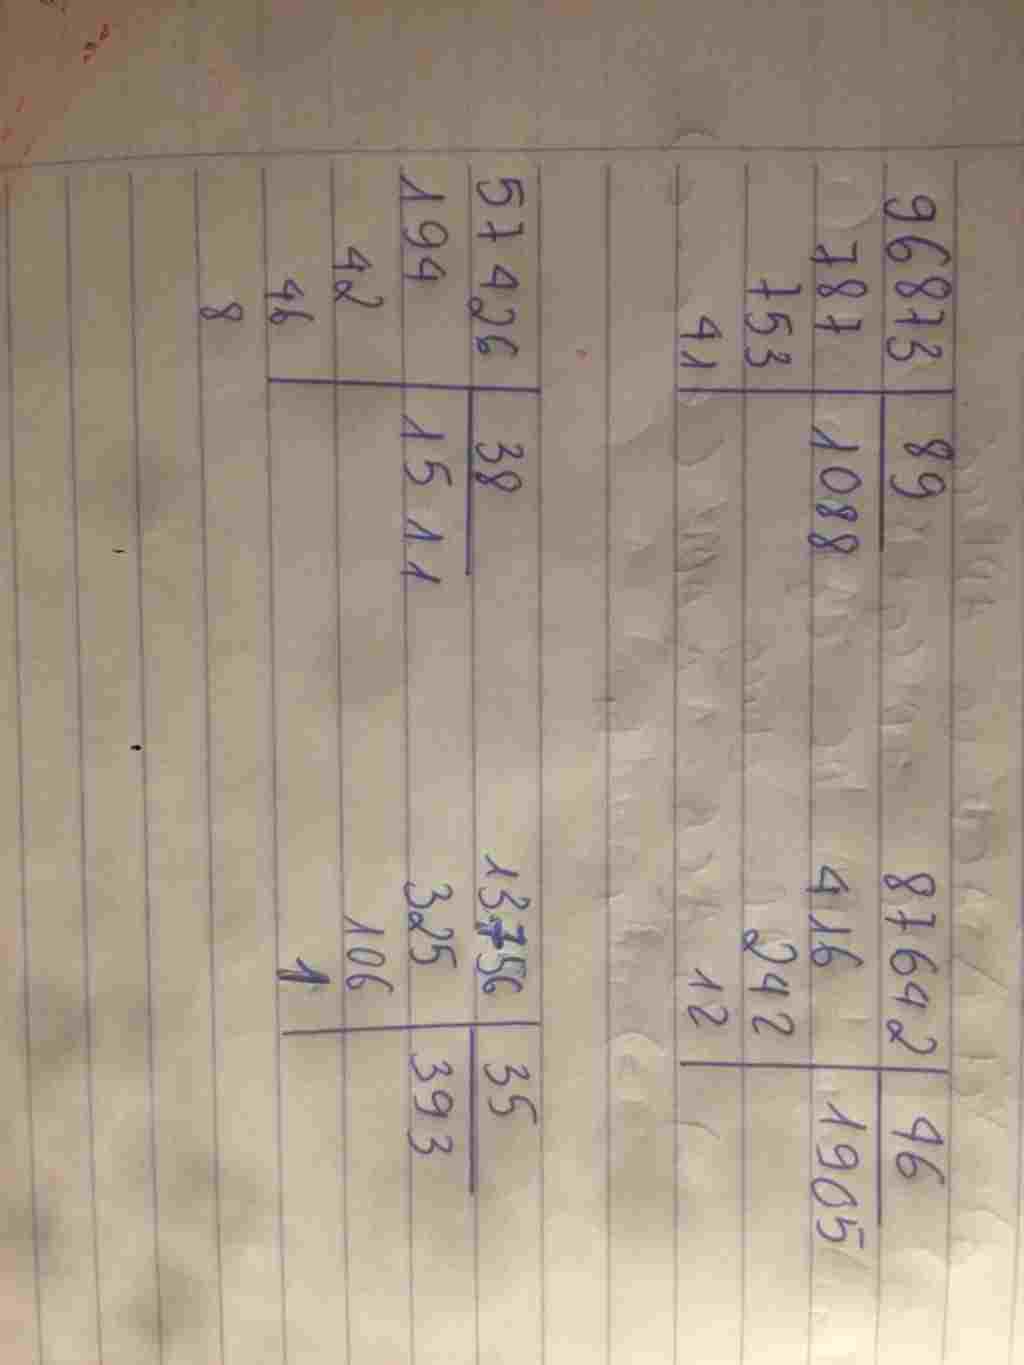 96873 89
787 1088
753
41
87642 46
416 1905
242
12
57426 38
194 1511
42
46
8
13756 35
325 393
106
1